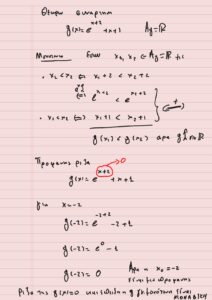 Θεωρώ συνάρτηση
g(x) = e^{x+2} + x + 1 Ag = ℝ
Μονοτονία Έστω x₁, x₂ ∈ Ag = ℝ
• x₁ < x₂ ⇔ x₁ + 2 < x₂ + 2
e^{x₁+2} < e^{x₂+2}
(+)
• x₁ < x₂ ⇔ x₁ + 1 < x₂ + 1
g(x₁) < g(x₂) άρα g ↑ ℝ
Προφανής ρίζα
0
g(x) = e^{x+2} + x + 1
για x = -2
g(-2) = e^{-2+2} - 2 + 1
g(-2) = e⁰ - 1
g(-2) = 0 Άρα x₀ = -2
είναι προφανής
ρίζα της g(x) = 0 και επειδή g είναι
μοναδική